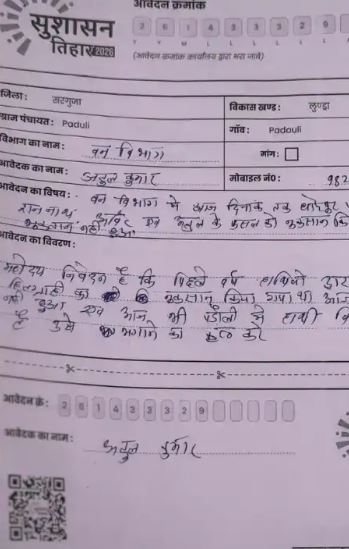 आवेदन क्रमांक
सुशासन
तिहार 2026
2 6 1 4 3 3 2 9
(आवेदन क्रमांक कार्यालय द्वारा भरा जावे)
जिला: सरगुजा
विकास खण्ड: लुण्ड्रा
ग्राम पंचायत: Paduli
गाँव: Padauli
विभाग का नाम: वन विभाग
मांग:
आवेदक का नाम: अतुल कुमार
मोबाईल नं०: 982
आवेदन का विषय: वन विभाग से आज दिनांक तक
के फसल को नुकसान
भुगतान नही हुआ
आवेदन का विवरण:
महोदय निवेदन है कि पिछले वर्ष हाथियो द्वार
का नुकसान किया गया था आज
नही हुआ एवं आज भी से हाथी
है मुझे भगाने का कष्ट करे
आवेदन क्रं: 2 6 1 4 3 3 2 9
आवेदक का नाम: अतुल कुमार